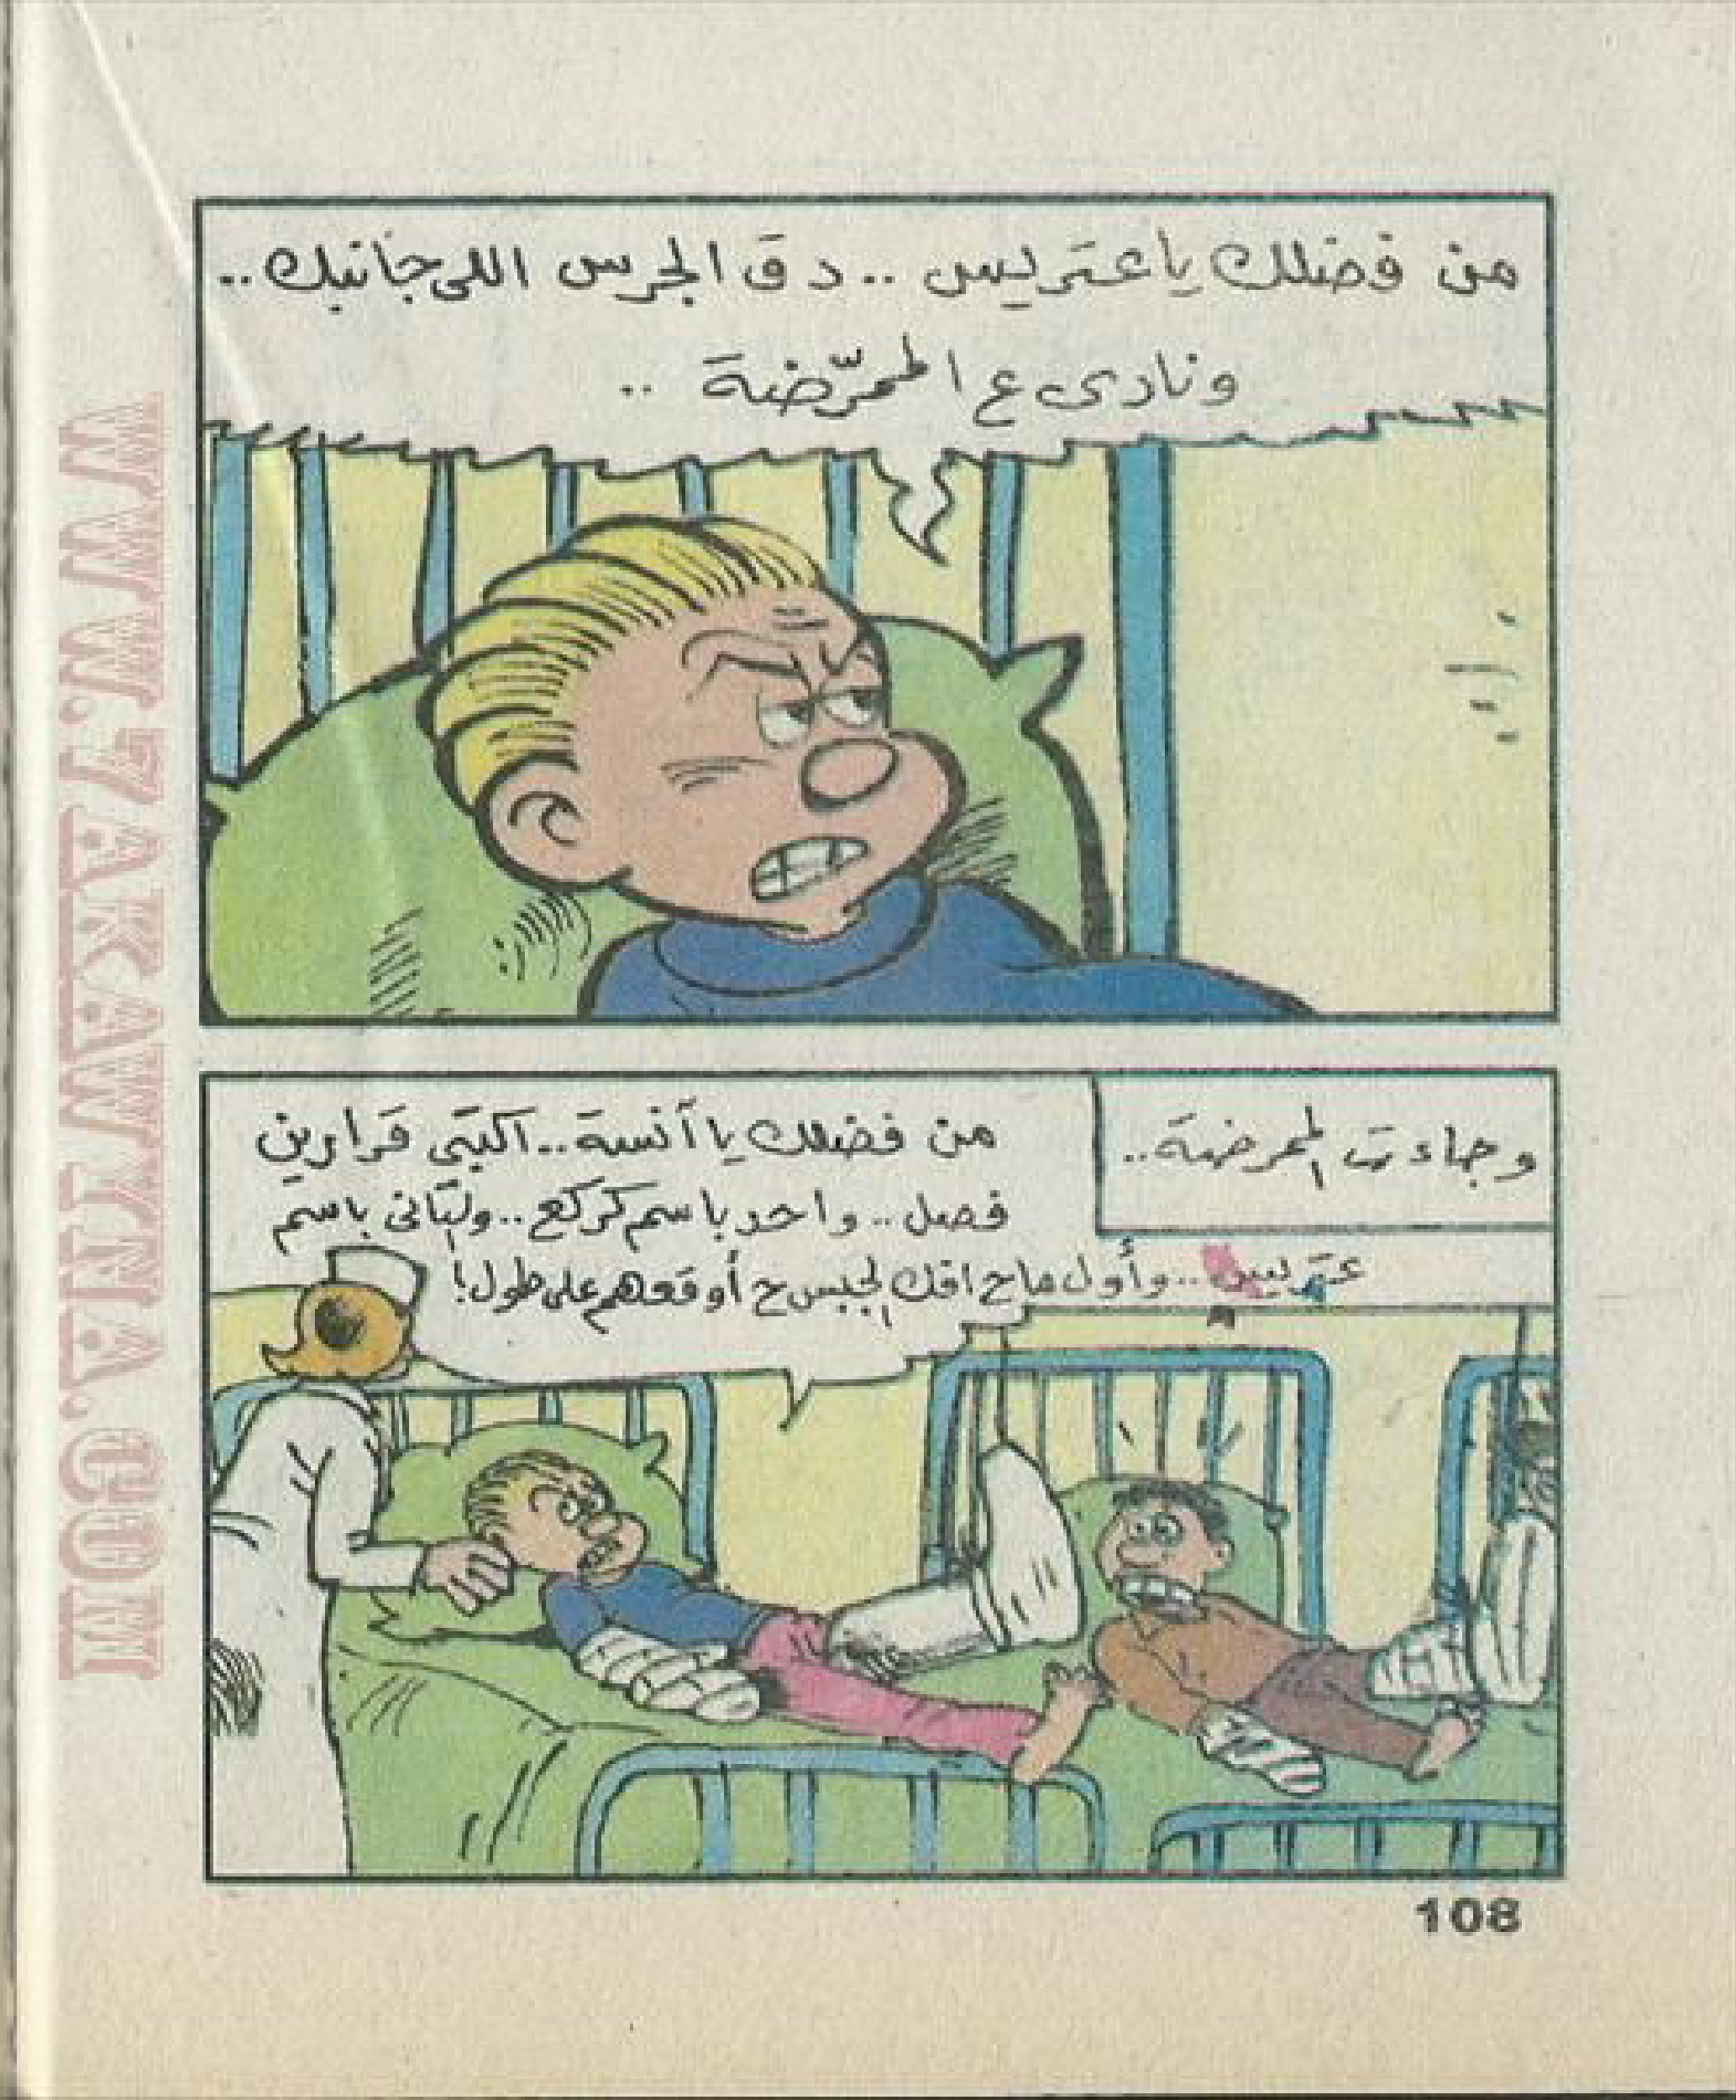 من فضلك يا عتريس .. دق الجرس اللى جانبك ..
ونادى ع الممرّضة ..
وجاءت الممرضة ..
من فضلك يا آنسة .. اكتبى قرارين
فصل .. واحد باسم كركع .. والتانى باسم
عتريس .. وأول ما ح افك الجبس ح أوقعهم على طول !
108
WWW.7AKAWITNA.COM